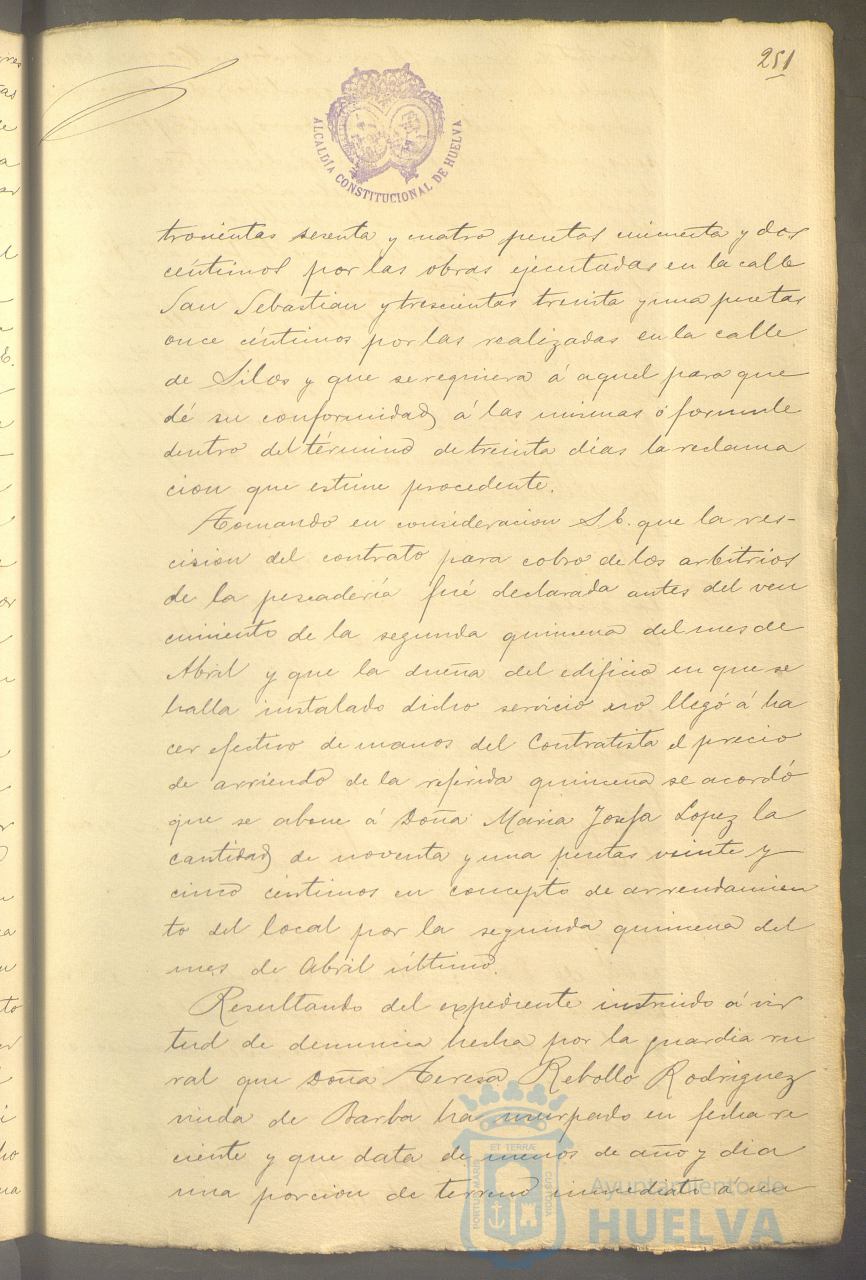 251
ALCALDIA CONSTITUCIONAL DE HUELVA
trocientas sesenta y cuatro pesetas cincuenta y dos
céntimos por las obras ejecutadas en la calle
San Sebastian y trescientas treinta y una pesetas
once céntimos por las realizadas en la calle
de Silos y que se requiera á aquel para que
dé su conformidad á las mismas ó formule
dentro del término de treinta días la reclama
cion que estime procedente.
Tomando en consideracion S.E. que la res-
cision del contrato para cobro de los arbitrios
de la pescadería fué declarada antes del ven
cimiento de la segunda quincena del mes de
Abril y que la dueña del edificio en que se
halla instalado dicho servicio no llegó á ha
cer efectivo de manos del Contratista el precio
de arriendo de la referida quincena se acordó
que se abone á Doña Maria Josefa Lopez la
cantidad de noventa y una pesetas veinte y
cinco céntimos en concepto de arrendamien
to del local por la segunda quincena del
mes de Abril último.
Resultando del expediente instruido á vir
tud de denuncia hecha por la guardia ru
ral que Doña Teresa Rebollo Rodriguez
viuda de Barba ha usurpado en fecha re
ciente y que data de menos de año y dia
una porcion de terreno inmediato á su
PORTUS MARIS ET TERRÆ CUSTODIA
Ayuntamiento de
HUELVA